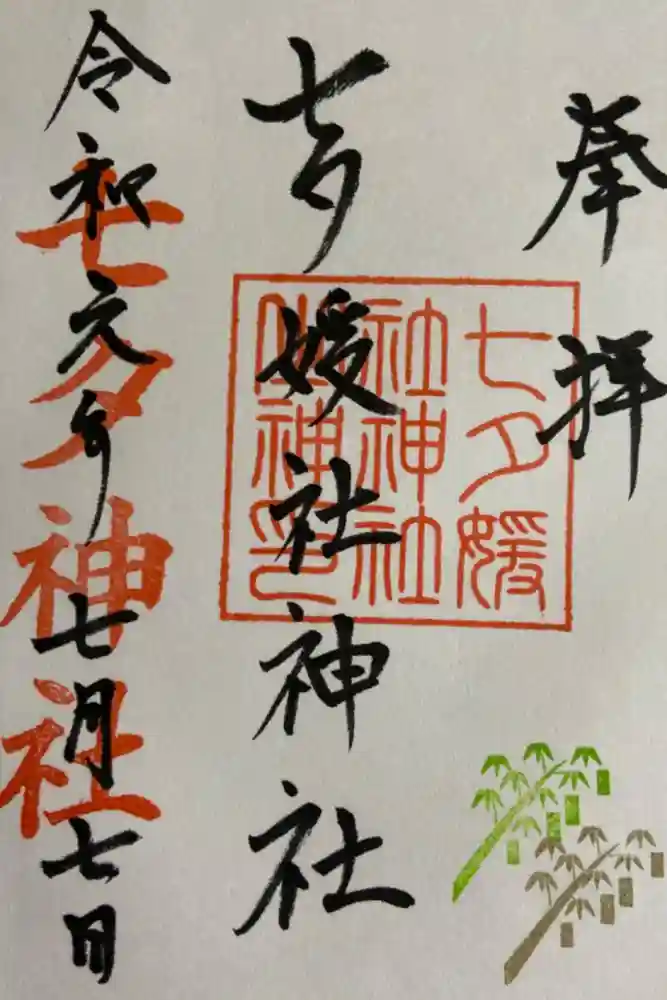 奉拝
七夕媛社神社
七夕媛
社神社
之神印
令和元年七月七日
七夕神社